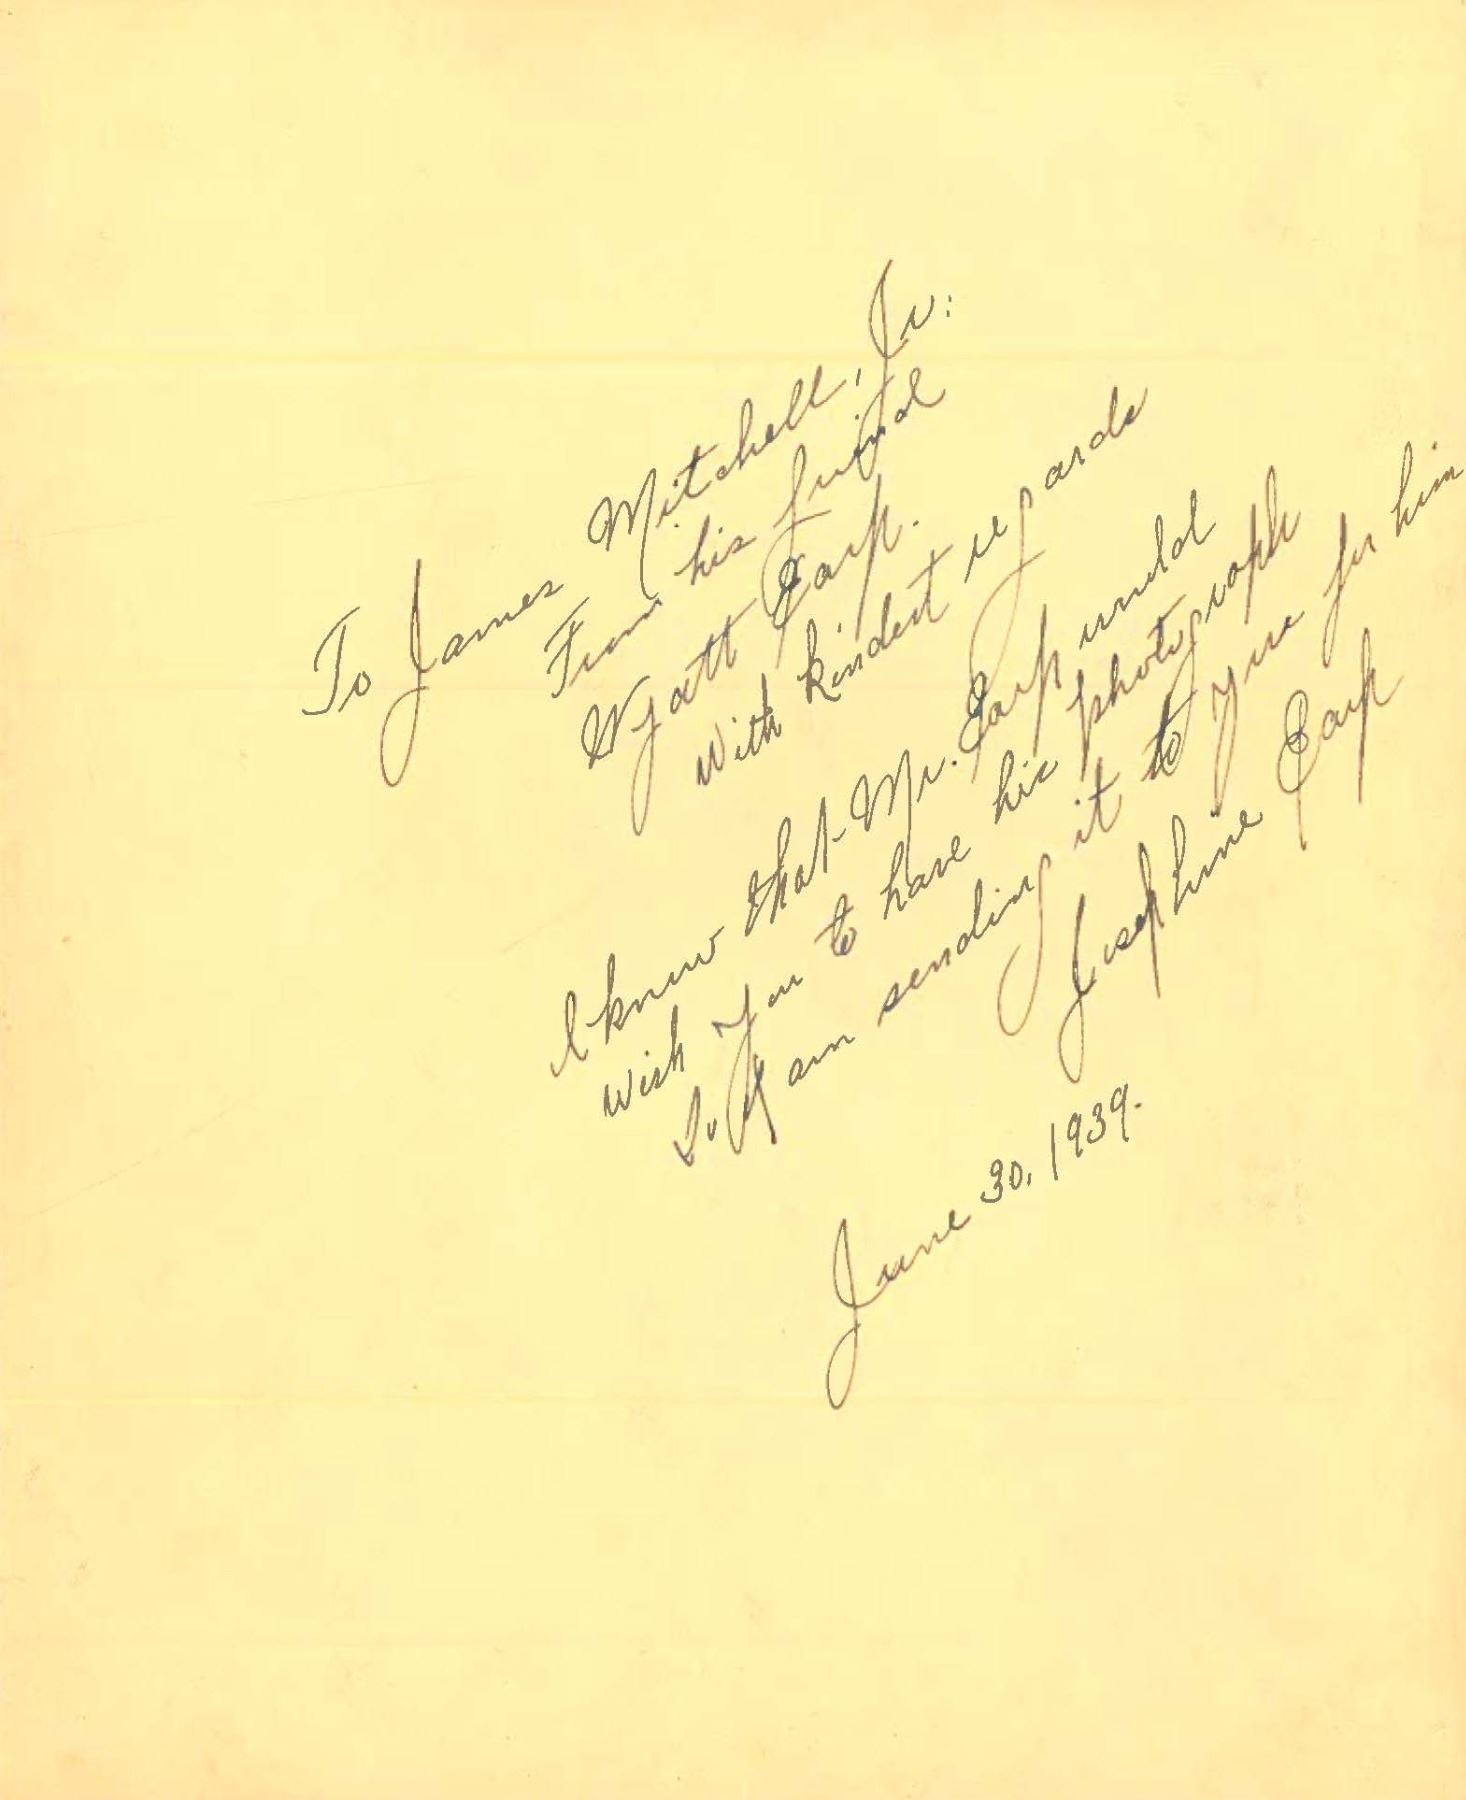 To James Mitchell, Jr:
From his friend
Wyatt Earp.
With kindest regards
I know that Mr. Earp would
wish you to have his photograph
So I am sending it to you for him
Josephine Earp
June 30, 1939.